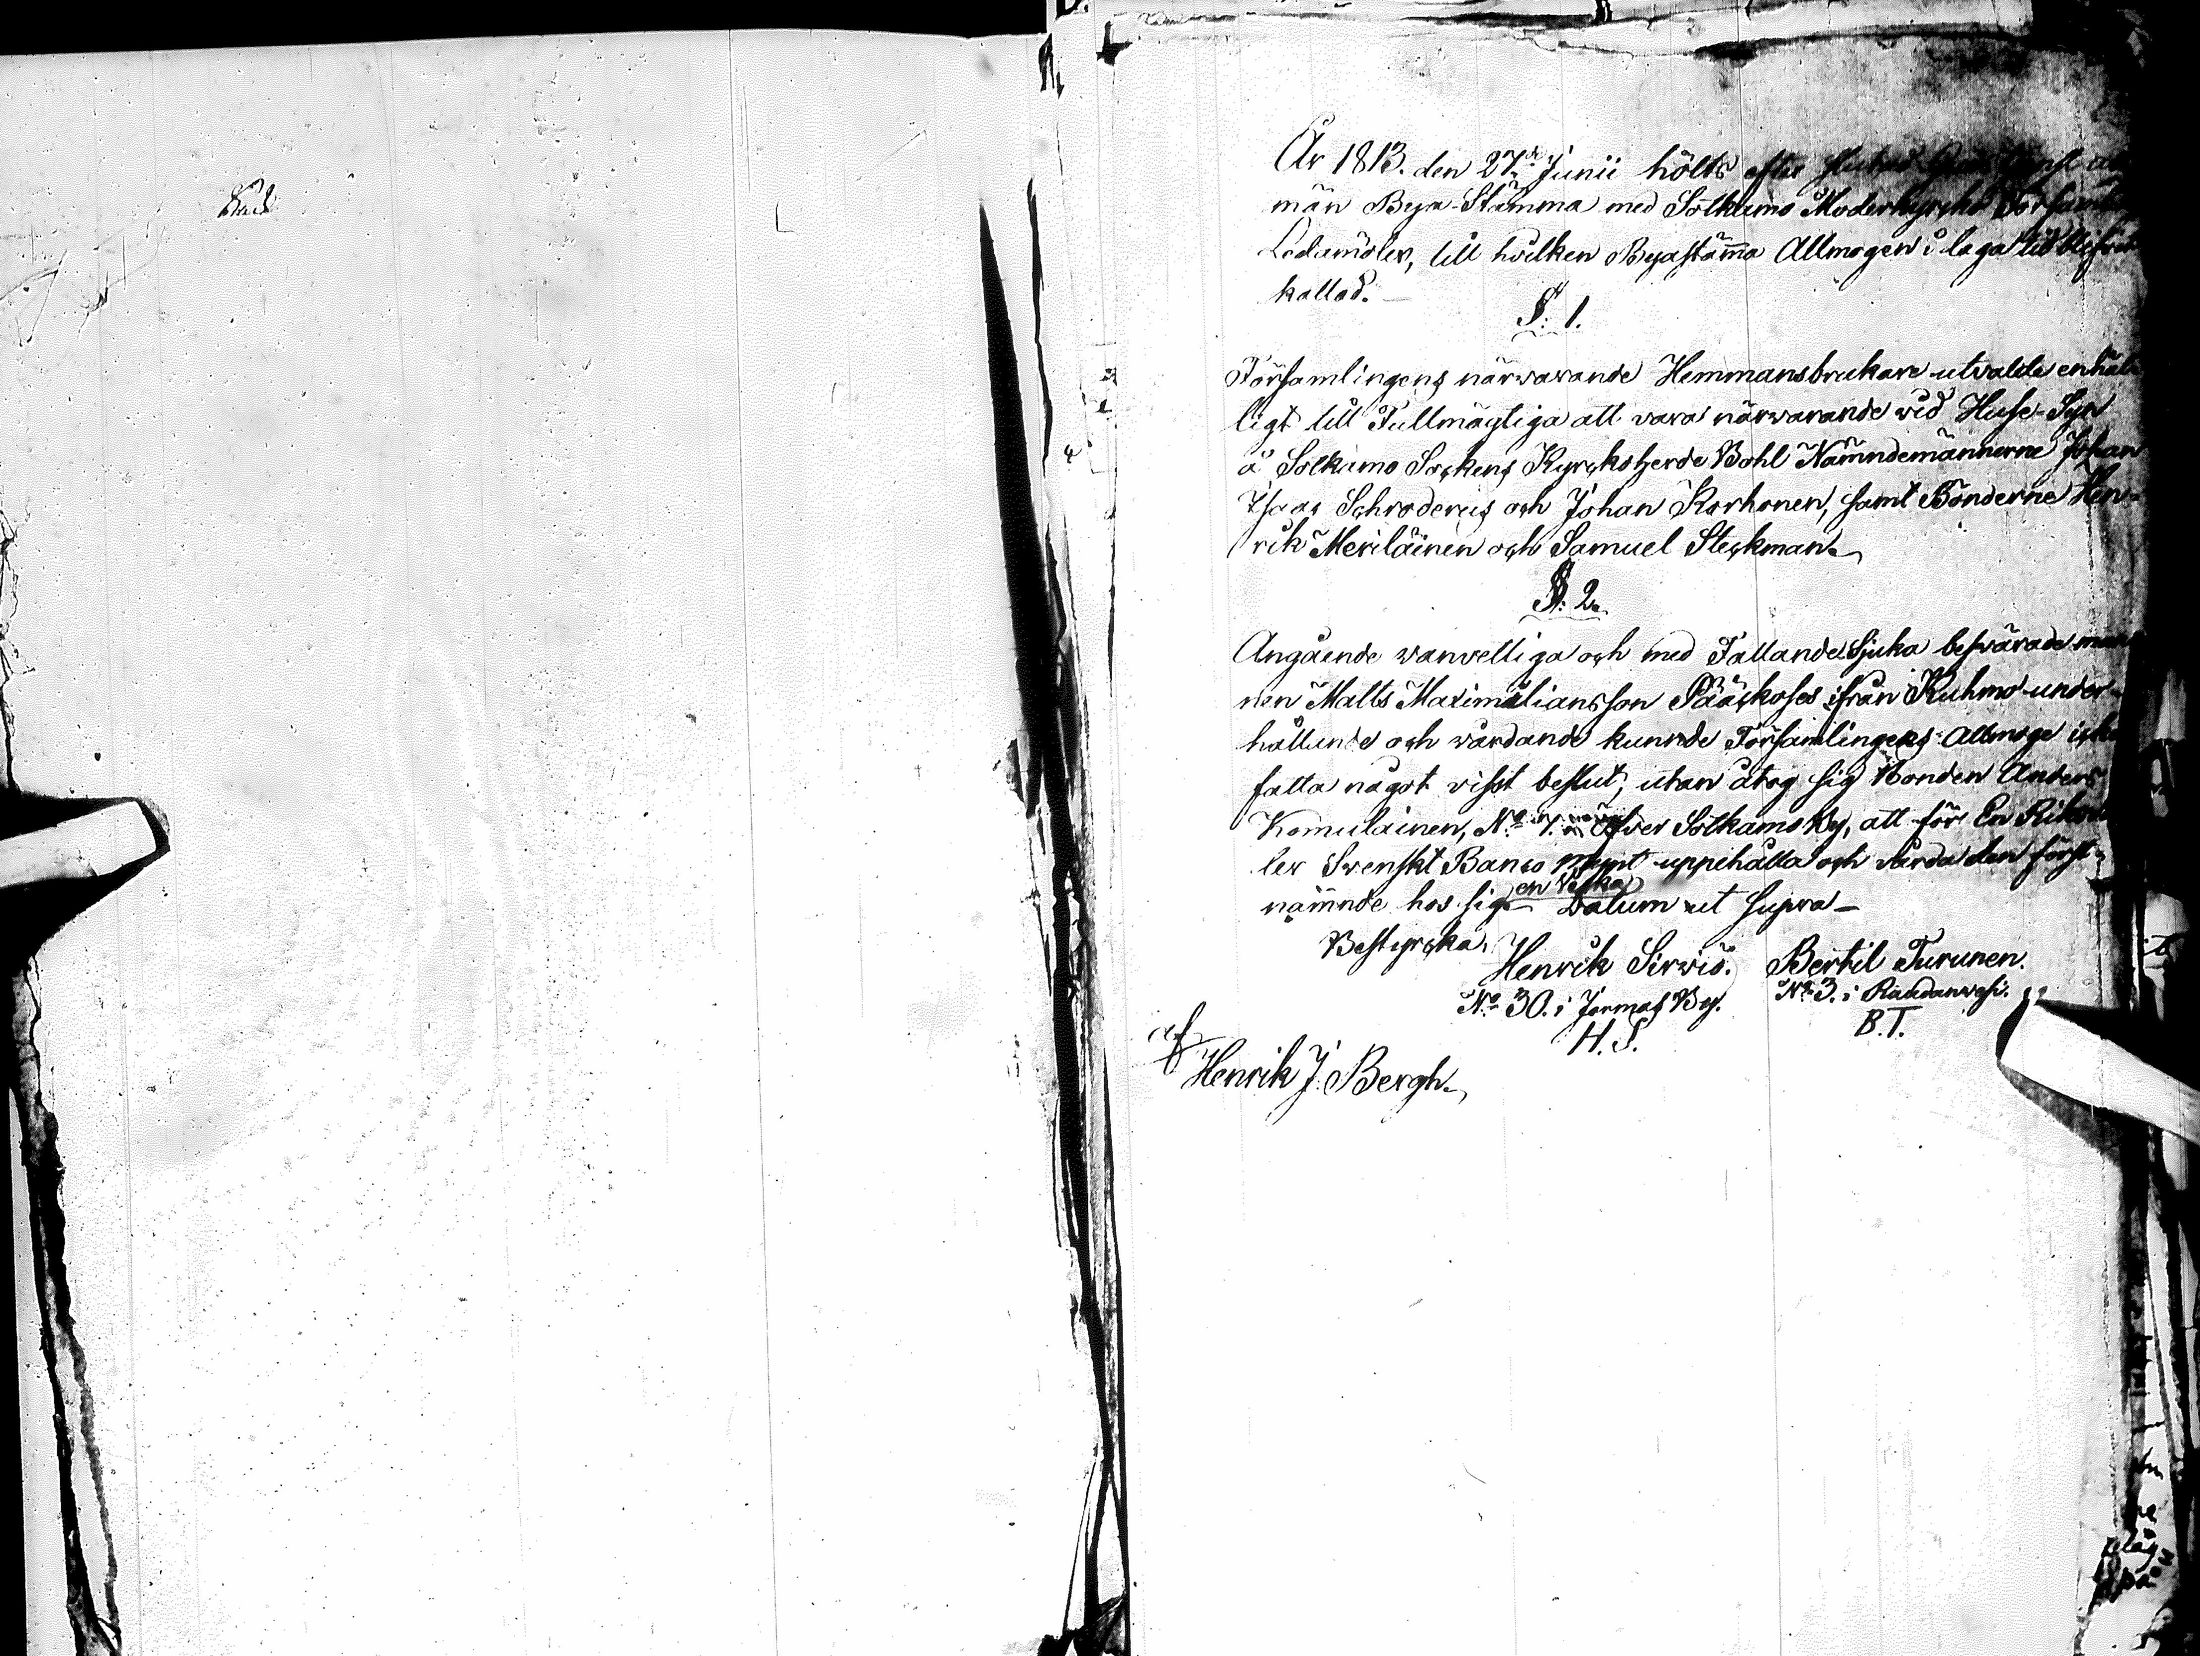 År 1813. den 27de Junii hölts efter slutad Gudstjenst
män Bya-Stämma med Sotkamo Moderkyrcko Församl
Ledamöter, till hvilken Byastäma Allmogen i laga tid blifvit
kallad.
§. 1.
Församlingens närwarande Hemmansbrukare utvalde enhäl
ligt till Fullmägtiga att vara närwarande wid Huse-Syn
å Sotkamo Sockens Kyrckoherde Bohl Nämndemännerne Johan
Isaac Schroderus och Johan Korhonen, samt Bönderne Hen-
rik Meriläinen och Samuel Steckman.
§. 2.
Angående wanvettiga och med Fallande Sjuka beswärade man
nen Matts Maximiliansson Pääckoses ifrån Kuhmo under-
hållande och wårdande kunnde Församlingens Allmoge icke
fatta något visst beslut, utan åtog sig Bonden Anders
Komulainen, No 7. Öfver Sotkamo By, att för En Riksda
ler Svenskt Banco Mynt uppehålla och vårda den först-
nämnde hos sig en Vecka. Datum ut supra
Bestyrcka,
Henrik Sirwiö. Bertil Turunen.
No 30. i Jormas By. No 3. i Raudanwesi.
H. S. B. T.
af
Henrik J. Bergh.